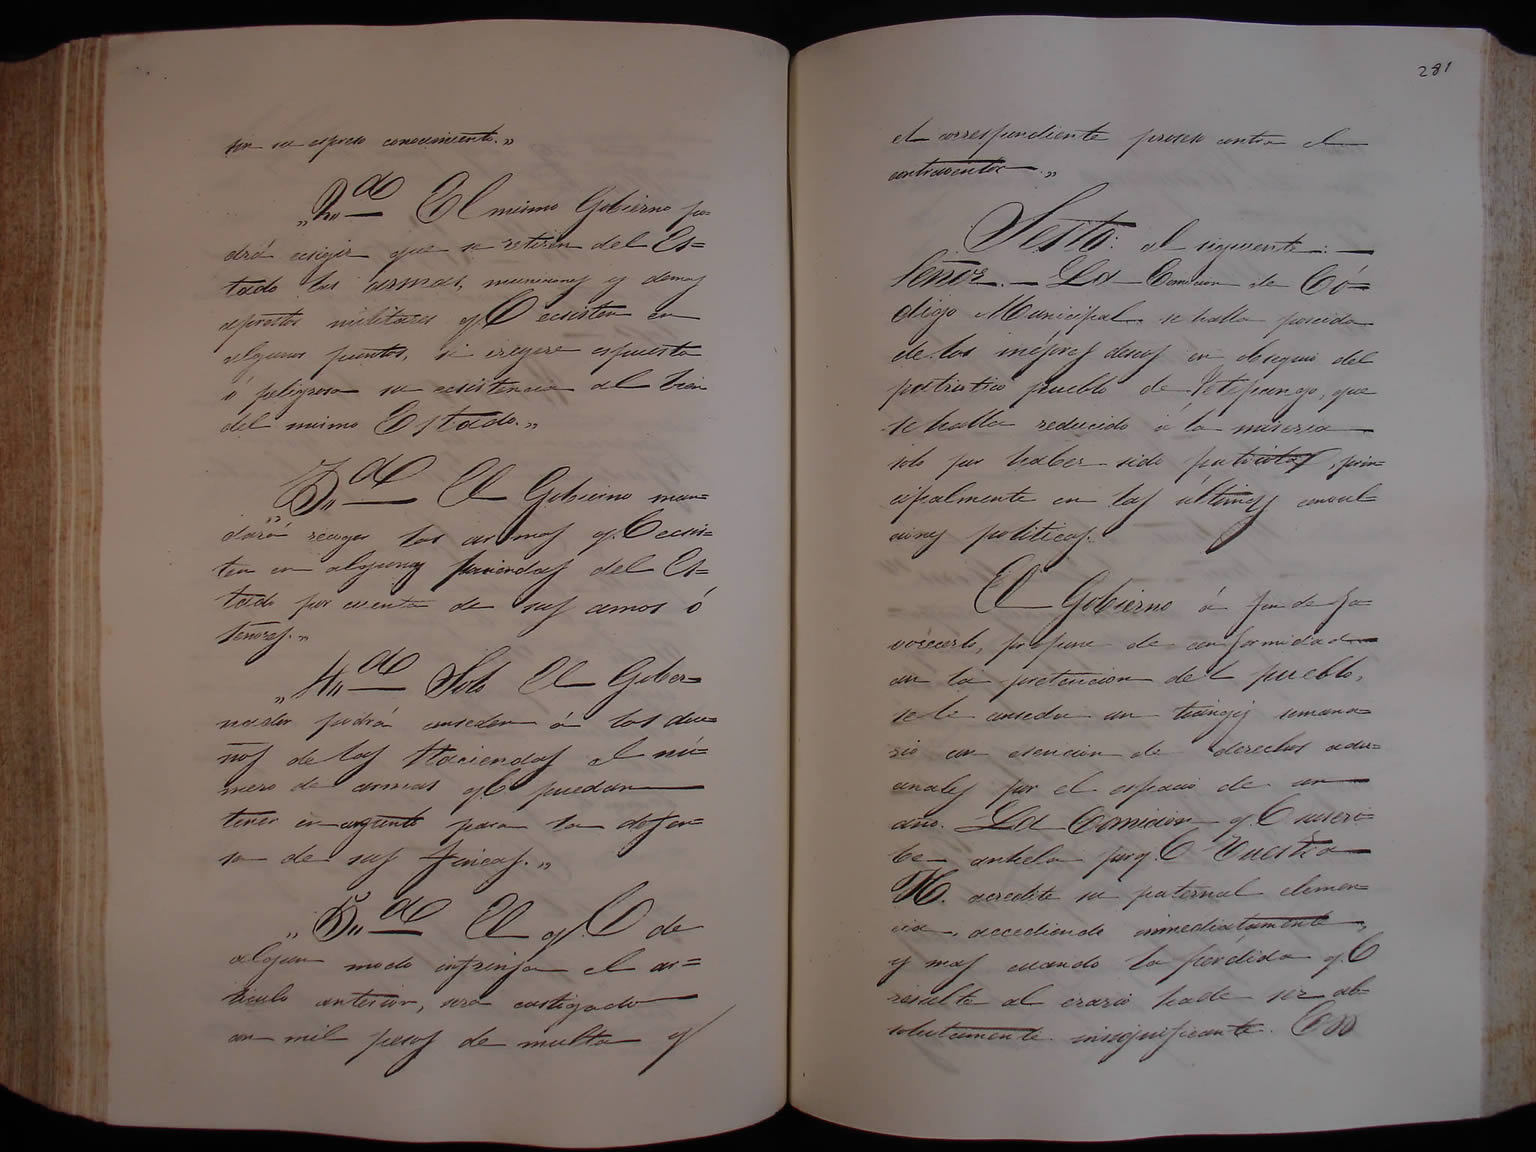 sin su espreso conocimiento.„
„2„a El mismo Gobierno po=
drá ecsigir que se retiren del Es=
tado las armas, municiones y demas
aprestos militares q.e ecsisten en
algunos puntos, si creyere espuesta
ó peligrosa su ecsistencia al bien
del mismo Estado.„
„3„a El Gobierno man=
dará recoger las armas q.e ecsis=
ten en algunas haciendas del Es=
tado por cuenta de sus amos ó
señores.„
„4„a Solo El Gober=
nador podrá conseder á los due=
ños de las Haciendas el nú=
mero de armas q.e puedan
tener en para la defen=
sa de sus fincas.„
„5„a El q.e de
algun modo infrinja el ar=
ticulo anterior, será castigado
con mil pesos de multa y
281
el correspondiente proseso contra el
contraventor.„
Sesto: al siguiente:—
Señor.— La Comision de Có=
digo Municipal se halla poseida
de los mejores deseos en obsequio del
patriotico pueblo de Ystepango, que
se halla reducido á la miseria
solo por haber sido patriota, prin
cipalmente en las últimas convul
ciones politicas.
El Gobierno á fin de fa
vorecerlo, propone de conformidad
con la pretencion del pueblo,
se le conseda un tianguis semana=
rio con esencion de derechos adu=
anales por el espacio de un
año. La Comision q.e suscri=
be anhela por q.e Vuestra
H. acredite su paternal clemen=
cia, accediendo inmediatamente,
y mas cuando la pérdida q.e
resulte al erario hade ser ab=
solutamente insignificante. En